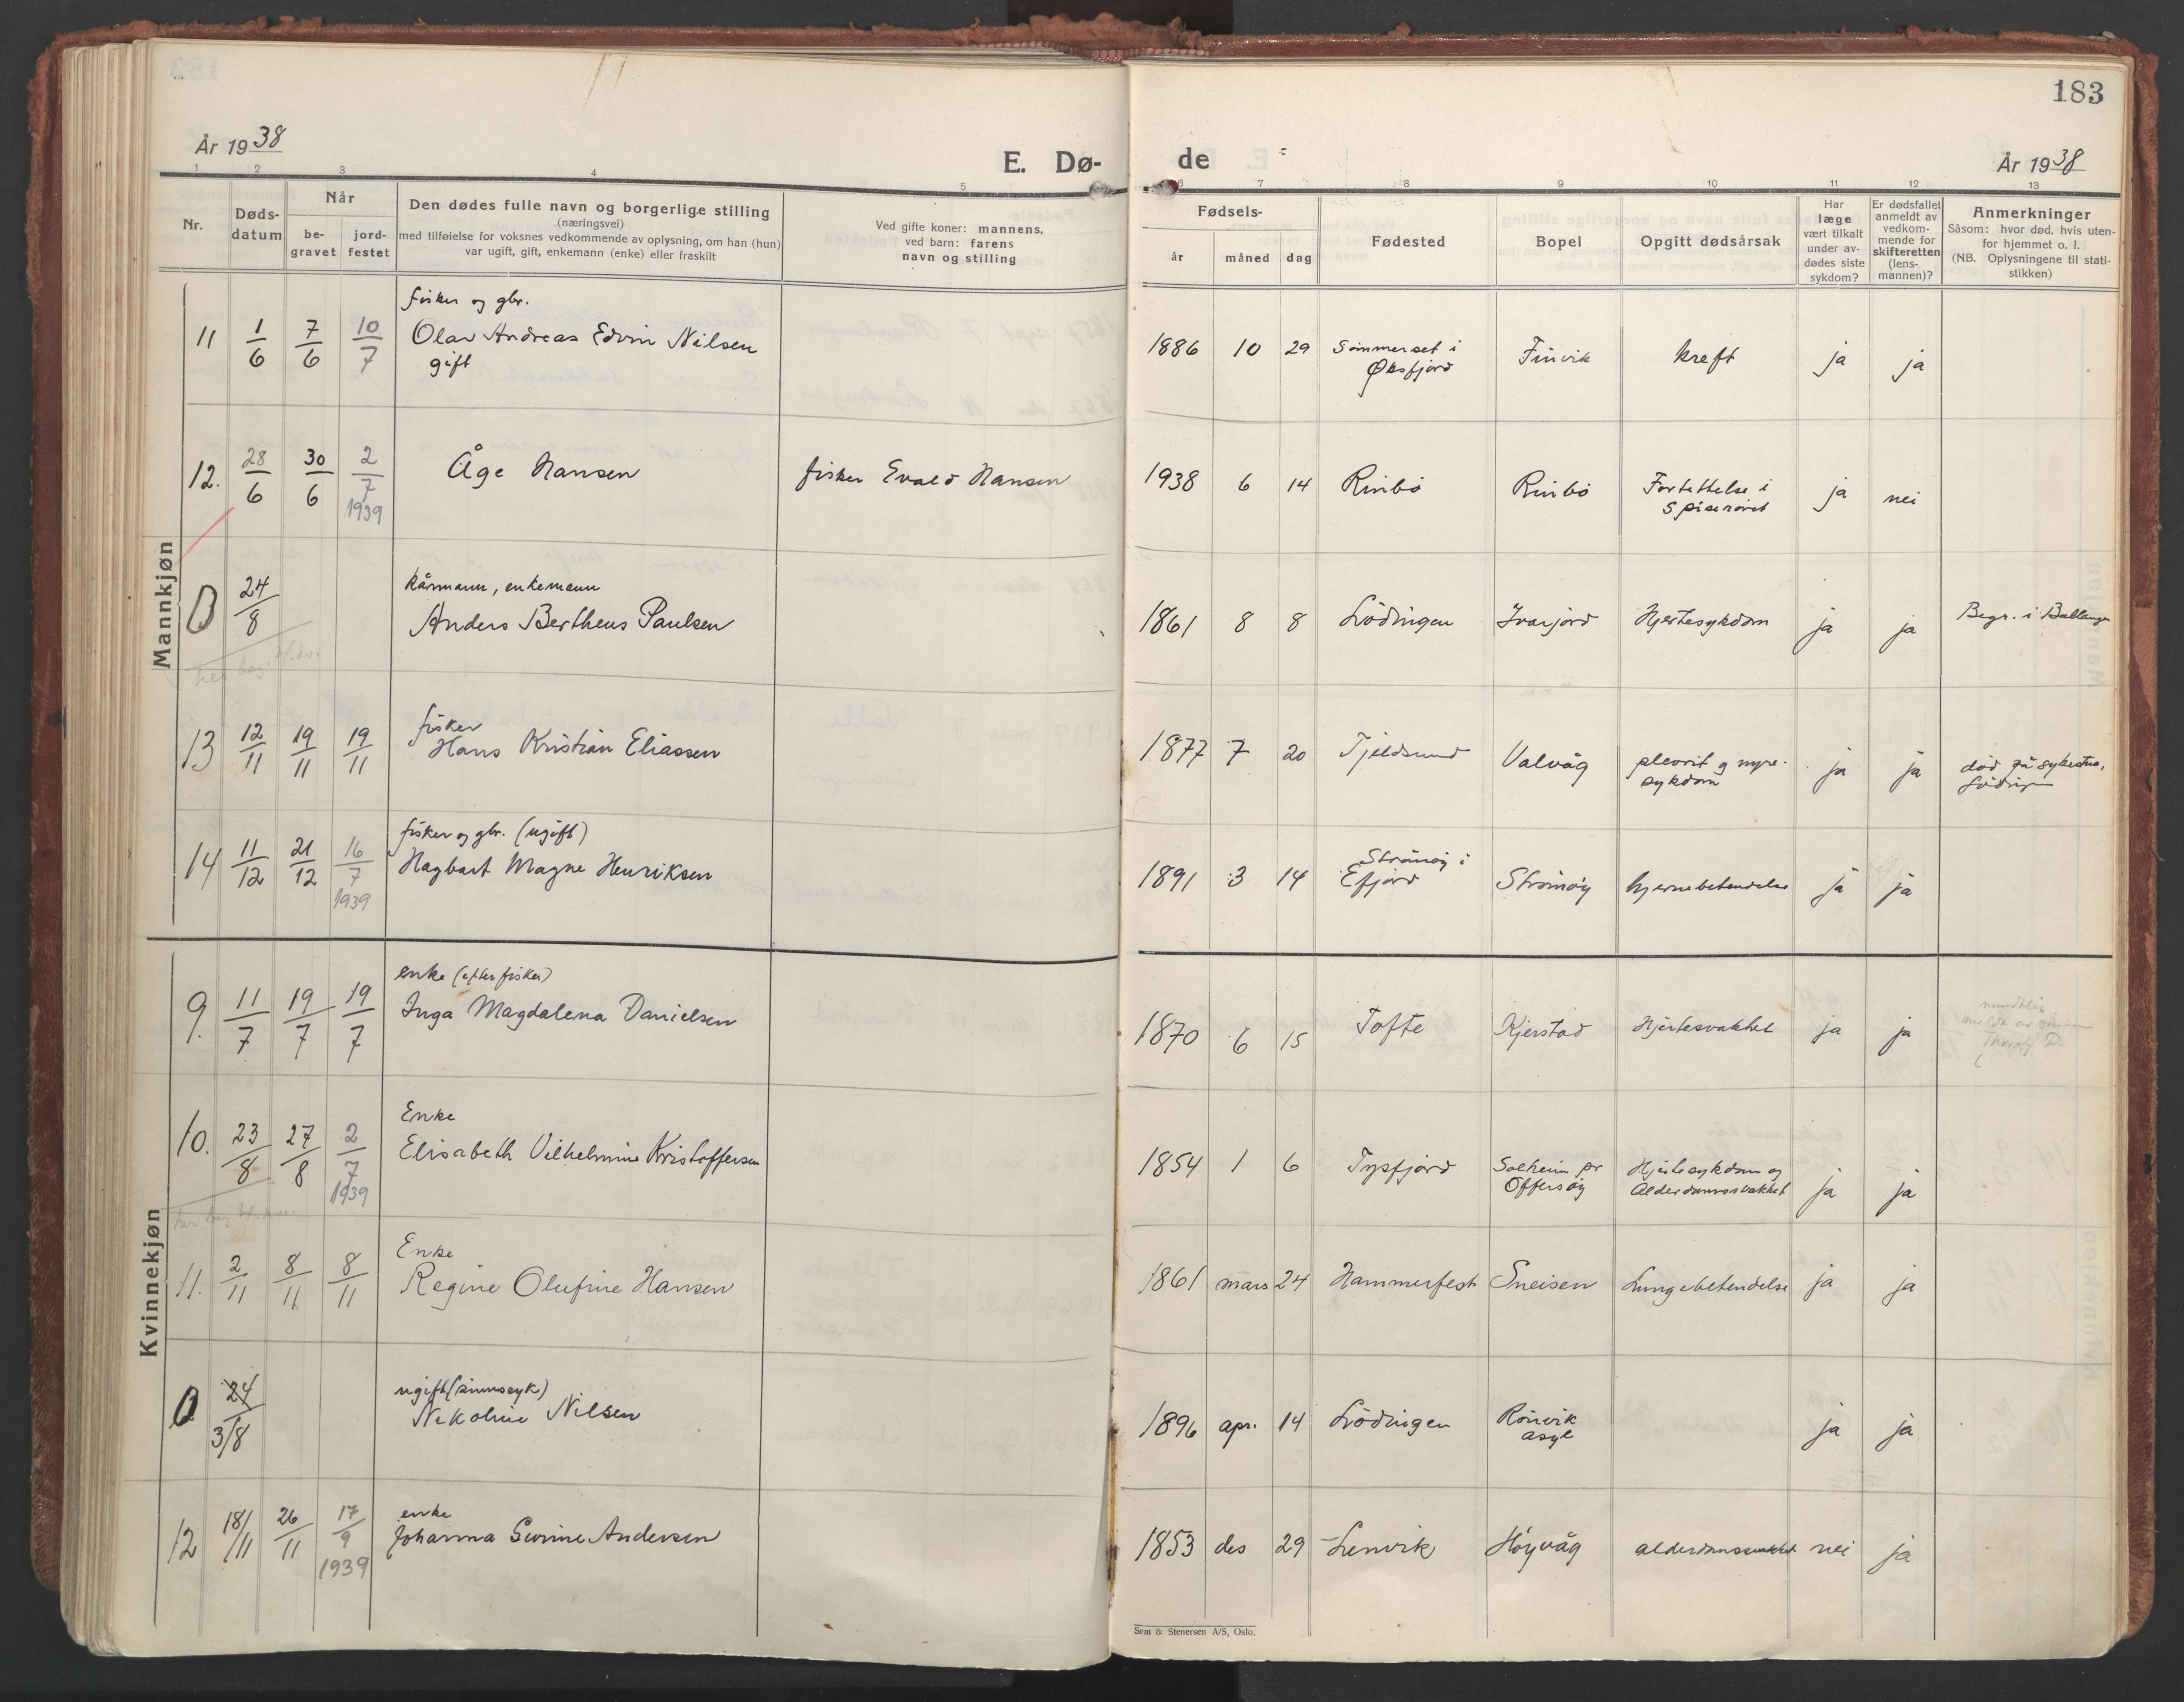 183
År 1938
E. Dø-
de
År 1938
1 2 3 4 5 6 7 8 9 10 11 12 13
Nr.
Døds-
datum
Når
be-
gravet
jord-
festet
Den dødes fulle navn og borgerlige stilling
(næringsvei)
med tilføielse for voksnes vedkommende av oplysning, om han (hun)
var ugift, gift, enkemann (enke) eller fraskilt
Ved gifte koner: mannens,
ved barn: farens
navn og stilling
Fødsels-
år måned dag
Fødested
Bopel
Opgitt dødsårsak
Har
læge
vært tilkalt
under av-
dødes siste
sykdom?
Er dødsfallet
anmeldt av
vedkom-
mende for
skifteretten
(lens-
mannen)?
Anmerkninger
Såsom: hvor død, hvis uten-
for hjemmet o. l.
(NB. Oplysningene til stati-
stikken)
Mannkjøn
fisker og gbr.
11 1/6 7/6 10/7 Olav Andreas Edvin Nilsen
gift
1886 10 29 Sommerset i
Øksfjord
Finvik kreft ja ja
12. 28/6 30/6 2/7 1939 Åge Hansen fisker Evald Hansen
1938 6 14 Rinbø Rinbø Fortettelse i
Spiserøret
ja nei
kårmann, enkemann
0 24/8 Anders Bertheus Paulsen
1861 8 8 Lødingen Ivarjord Hjertesykdom ja ja Begr. i Ballangen
fisker
13 12/11 19/11 19/11 Hans Kristian Eliassen
1877 7 20 Tjeldsund Valvåg plevrit og nyre-
sykdom
ja ja død på sykestua,
Lødingen
fisker og gbr. (ugift)
14 11/12 21/12 16/7 1939 Hagbart Magne Henriksen
1891 3 14 Strømøy i
Efjord
Strømøy hjernebetendelse ja ja
Kvinnekjøn
enke (efter fisker)
9. 11/7 19/7 19/7 Inga Magdalena Danielsen
1870 6 15 Tofte Kjerstad Hjertesvakhet ja ja
Enke
10. 23/8 27/8 2/7 1939 Elisabeth Vilhelmine Kristoffersen
1854 1 6 Tysfjord Solheim pr
Offersøy
Hjertesykdom og
Alderdomssvakhet
ja ja
Enke
11. 2/11 8/11 8/11 Regine Olufine Hansen
1861 mars 24 Hammerfest Sneisen Lungebetendelse ja ja
ugift (sinnssyk)
0 24 3/8 Nikoline Nilsen
1896 apr. 14 Lødingen Rønvik
asyl
ja ja
enke
12 18/11 26/11 17/9 1939 Johanna Gurine Andersen
1853 des 29 Lenvik Høyvåg alderdomssvakhet nei ja
Sem & Stenersen A/S, Oslo.